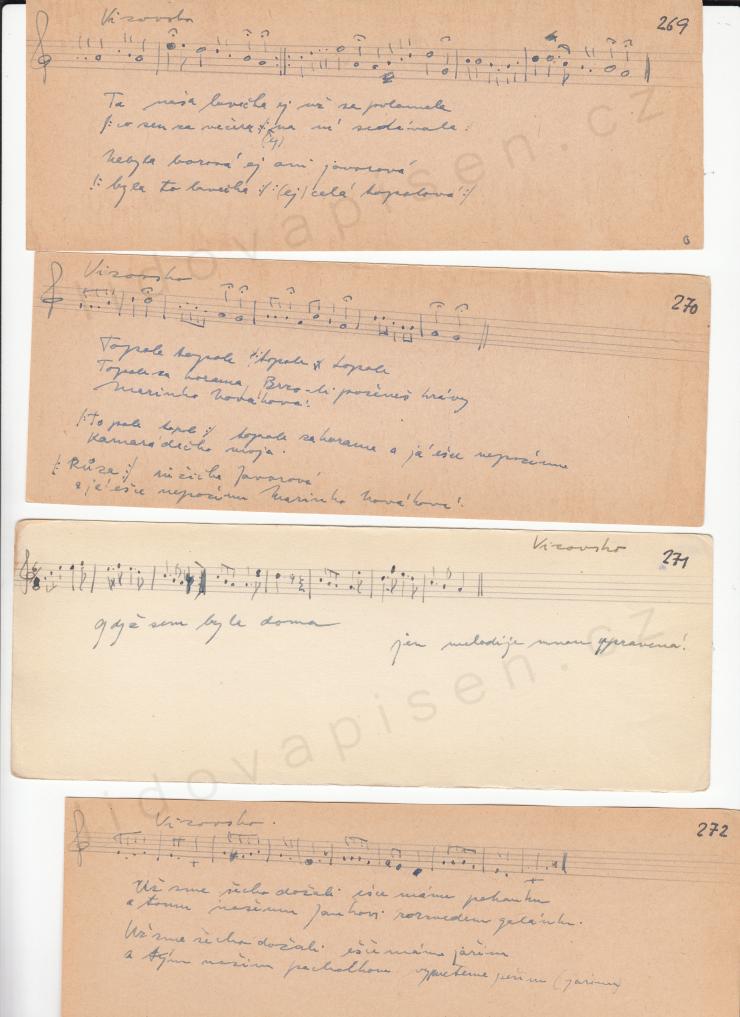 Vizovsko
269
Ta naša lavečka ej už sa polamala
/: co sem za večera :/ na ní sedávala :
(ej)
Nebyla borová ej ani javorová
/: byla to lavečka :/ : (ej) celá topolová :/
Vizovsko
270
Topole topole /: topole :/ topole
Topole za horama, Brzo-li poženeš krávy
Marinko Nováková!
/: Topole topole :/ topole za horama a já ešče nepoznám
Kamarádečka moja.
/: Růža :/ růžička Javorová
a já ešče nepoznám Marinko Nováková!
Vizovsko
271
Gdyž sem byla doma
jen melodije mnou upravená!
Vizovsko.
272
Už sme šecko dožali ešče máme pohanku
a tomu našemu Jankovi rozvedem galánku.
Už sme šecko dožali ešče máme jařinu
a tým našim pacholkom vymeteme peřinu (jařinu)
lidovapisen.cz
lidovapisen.cz